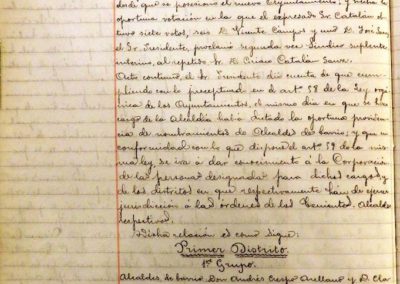 dad que se posesionó el nuevo Ayuntamiento; y hecha la
oportuna votación en la que el expresado Sr. Catalán ob-
tuvo siete votos, seis D. Vicente Campos y uno D. José Sanz,
el Sr. Presidente, proclamó segunda vez Síndico suplente
interino, al repetido Sr. D. Ciriaco Catalán
Acto continuo, el Sr. Presidente dió cuenta de que cum-
pliendo con lo preceptuado en el artº 58 de la Ley orgá-
nica de los Ayuntamientos, el mismo día en que se hizo
cargo de la Alcaldía había dictado la oportuna providen-
cia de nombramientos de Alcaldes de barrio; y que en
conformidad con lo que dispone el artº 59 de la mis-
ma ley, se iva á dar conocimiento á la Corporación
de las personas designadas para dichos cargos y
de los distritos en que respectivamente han de ejercer
jurisdicción á las órdenes de los Tenientes Alcaldes
respectivos.
Dicha relación es como sigue:
Primer Distrito.
1er Grupo.
Alcaldes de barrio, Don Andrés Crespo Arellano y D. Cla-